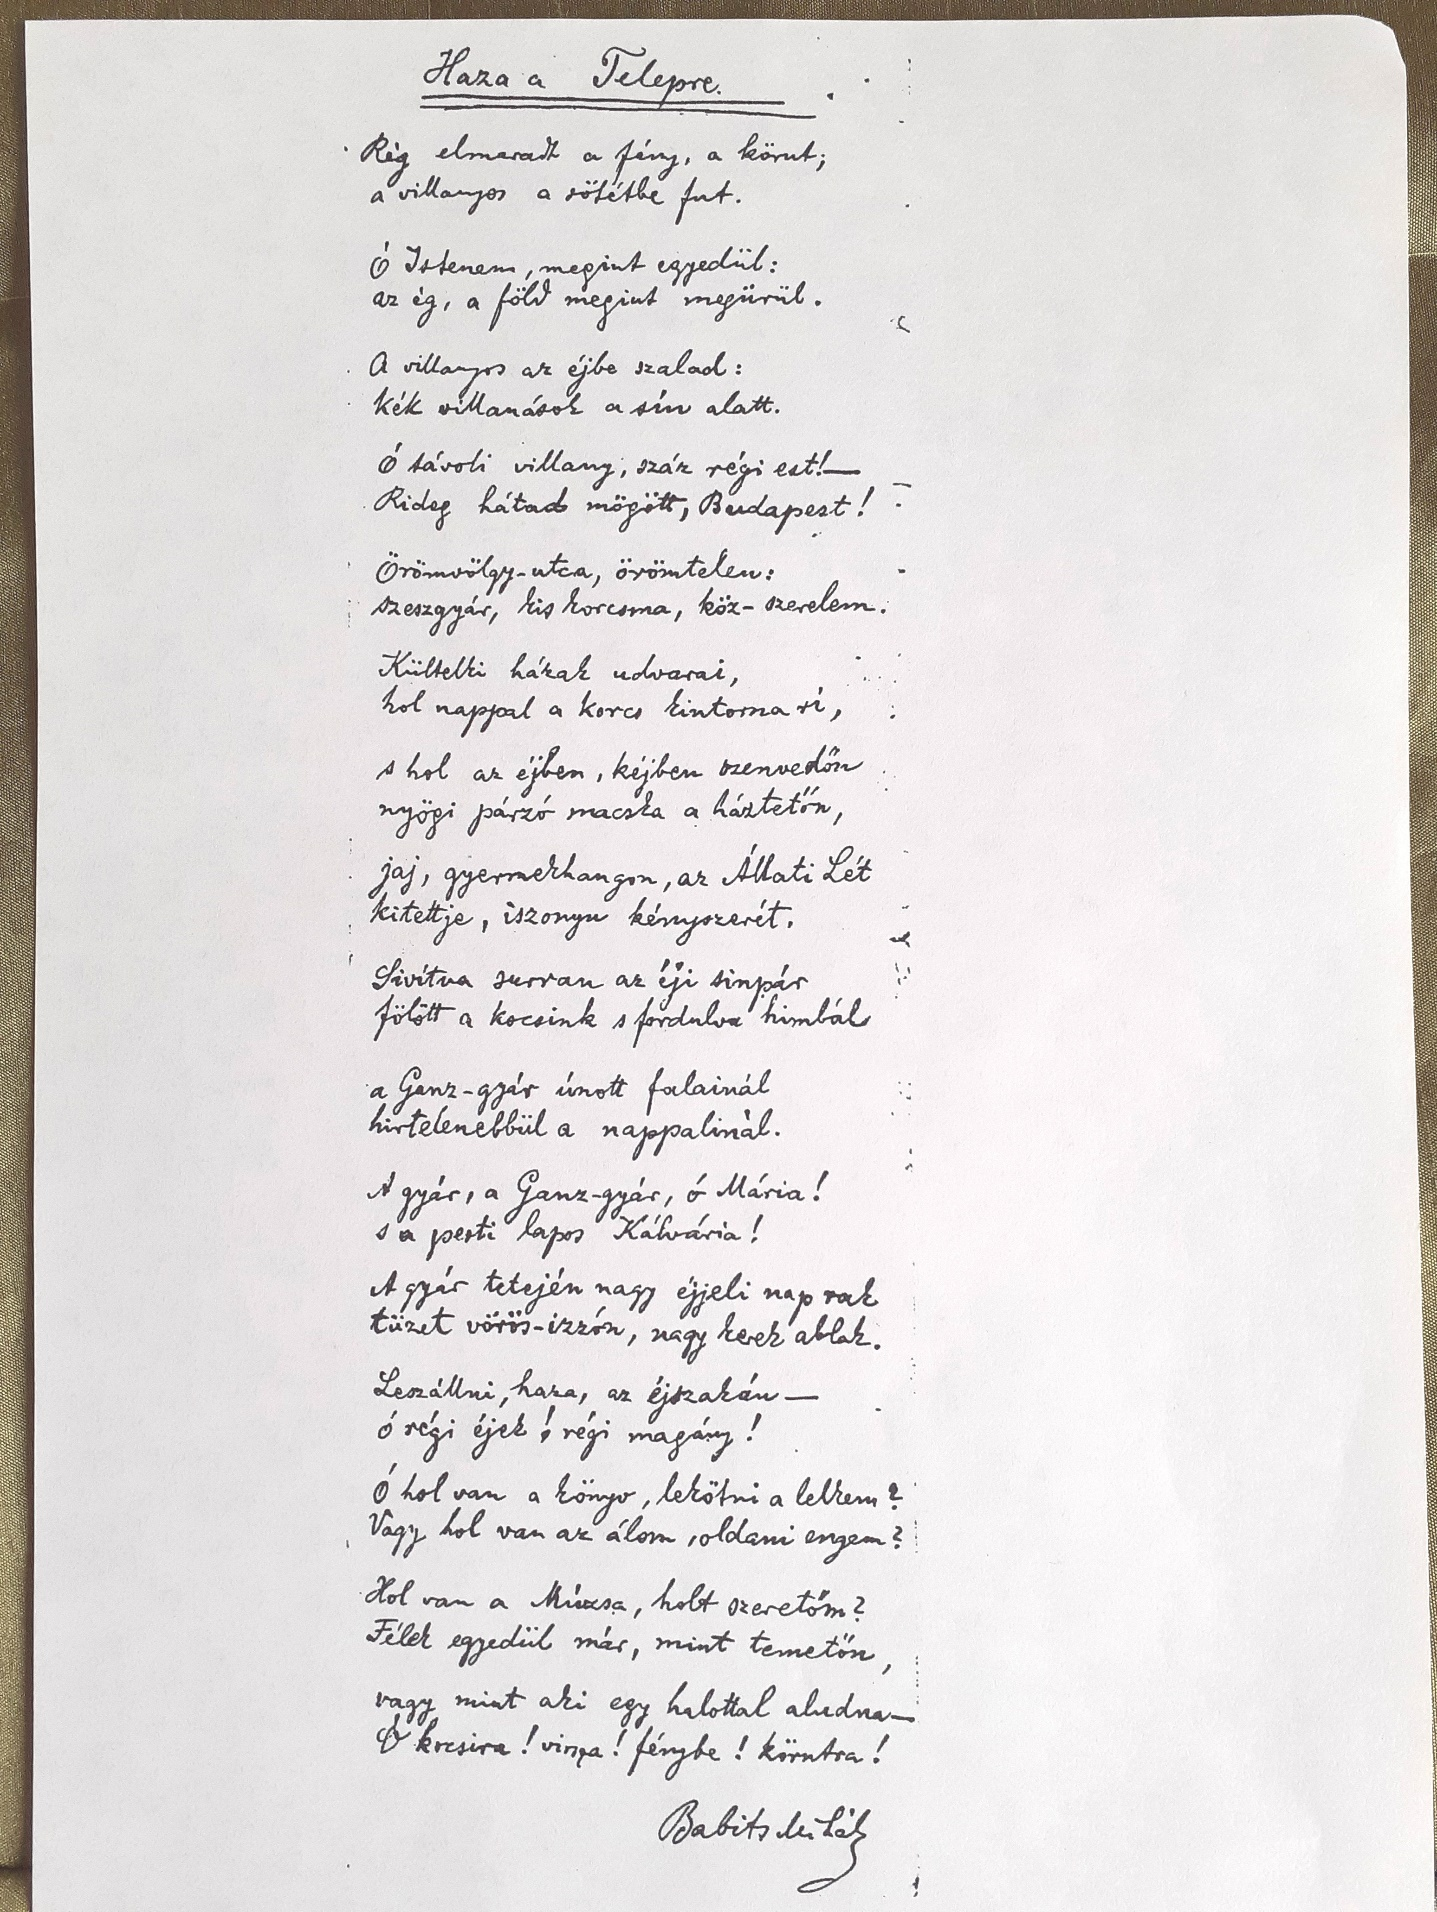 Haza a Telepre.
Rég elmaradt a fény, a körut;
a villanyos a sötétbe fut.
Ó Istenem, megint egyedül:
az ég, a föld megint megürül.
A villanyos az éjbe szalad:
kék villanások a sín alatt.
Ó távoli villany, száz régi est!—
Rideg hátad mögött, Budapest!
Örömvölgy-utca, örömtelen:
szeszgyár, kis korcsma, köz-szerelem.
Kültelki házak udvarai,
hol nappal a korcs kintorna rí,
s hol az éjben, kéjben szenvedőn
nyögi párzó macska a háztetőn,
jaj, gyermekhangon, az Állati Lét
kitettje, iszonyu kényszerét.
Sivítva surran az éji sinpár
fölött a kocsink s fordulva himbál
a Ganz-gyár únott falainál
hirtelenebbül a nappalinál.
A gyár, a Ganz-gyár, ó Mária!
s a pesti lapos Kálvária!
A gyár tetején nagy éjjeli nap rak
tüzet vörös-izzón, nagy kerek ablak.
Leszállni, haza, az éjszakán—
ó régi éjek! régi magány!
Ó hol van a könyv, lekötni a lelkem?
Vagy hol van az álom, oldani engem?
Hol van a Múzsa, holt szeretőm?
Félek egyedül már, mint temetőn,
vagy mint aki egy halottal aludna—
Ó kocsira! vissza! fénybe! körutra!
Babits Mihály